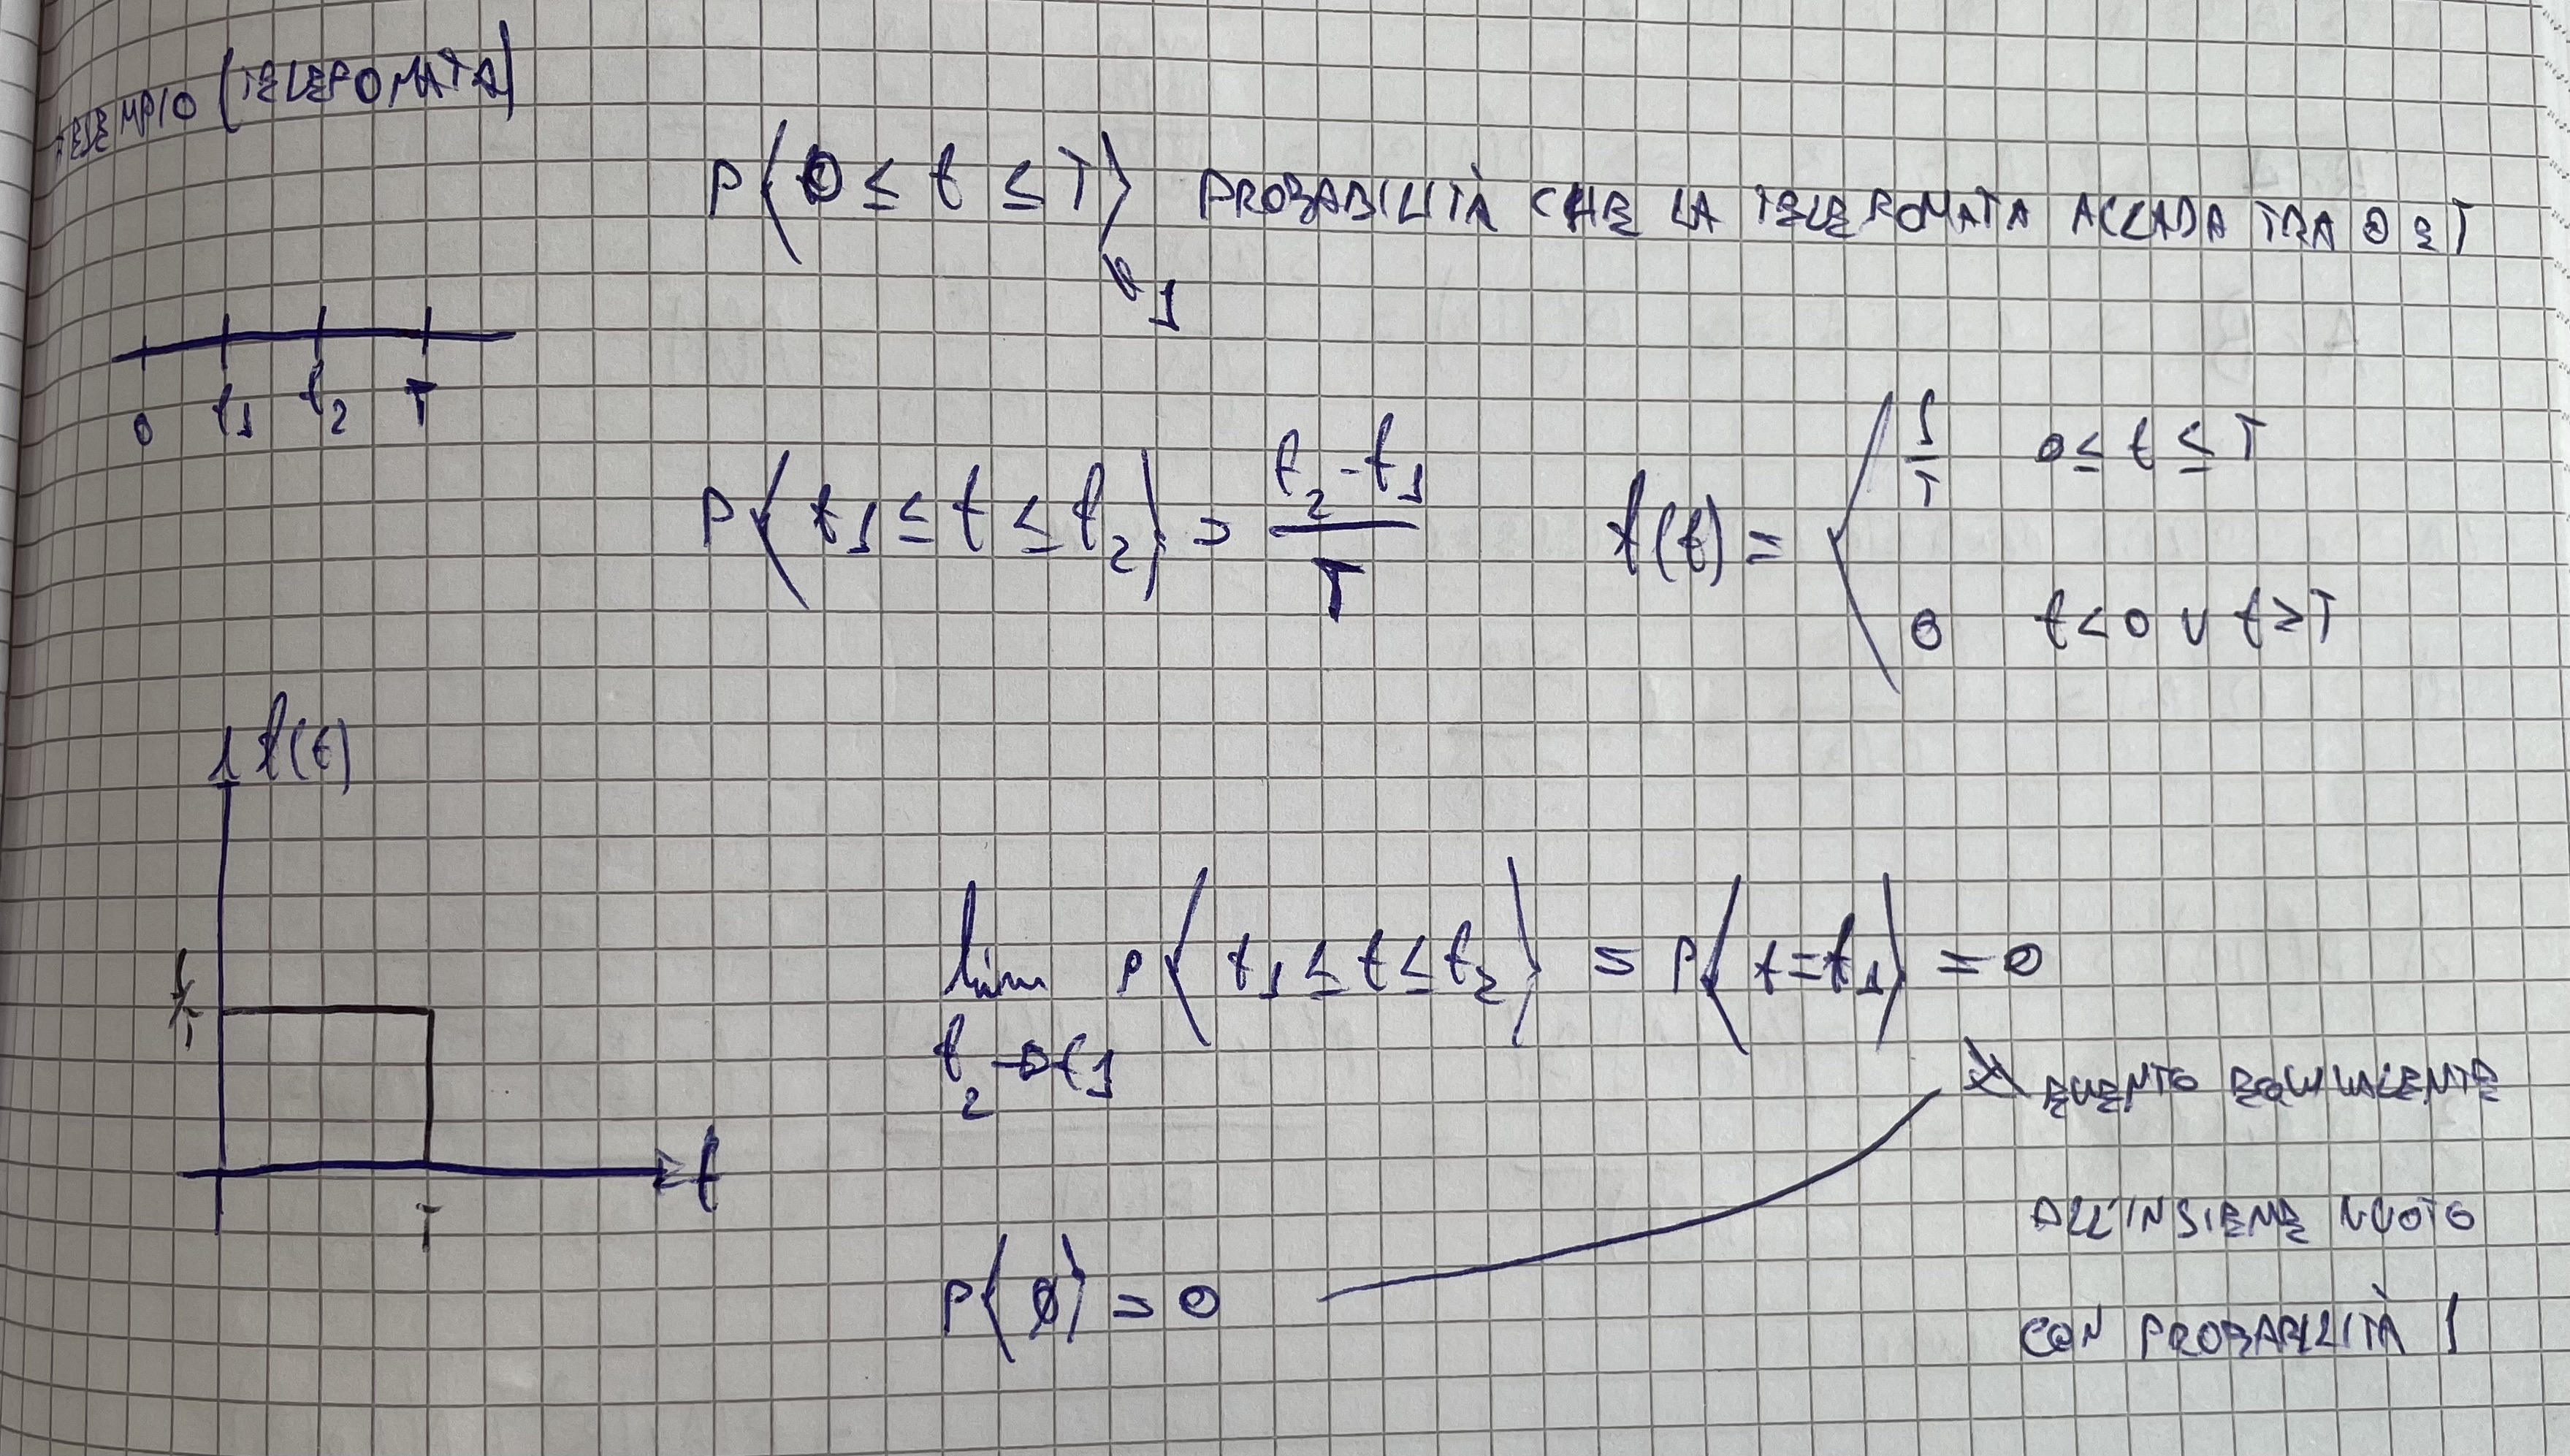 ESEMPIO (TELEFONATA)
P{0 ≤ t ≤ T} PROBABILITÀ CHE LA TELEFONATA ACCADA TRA 0 E T
1
0 t1 t2 T
P{t1 ≤ t ≤ t2} = (t2 - t1)/T
f(t) = { 1/T 0 ≤ t ≤ T
0 t<0 ∨ t>T
f(t)
1/T
T
t
lim t2→t1 P{t1 ≤ t ≤ t2} = P{t=t1} = 0
EVENTO EQUIVALENTE
ALL'INSIEME VUOTO
CON PROBABILITÀ 1
P{∅} = 0